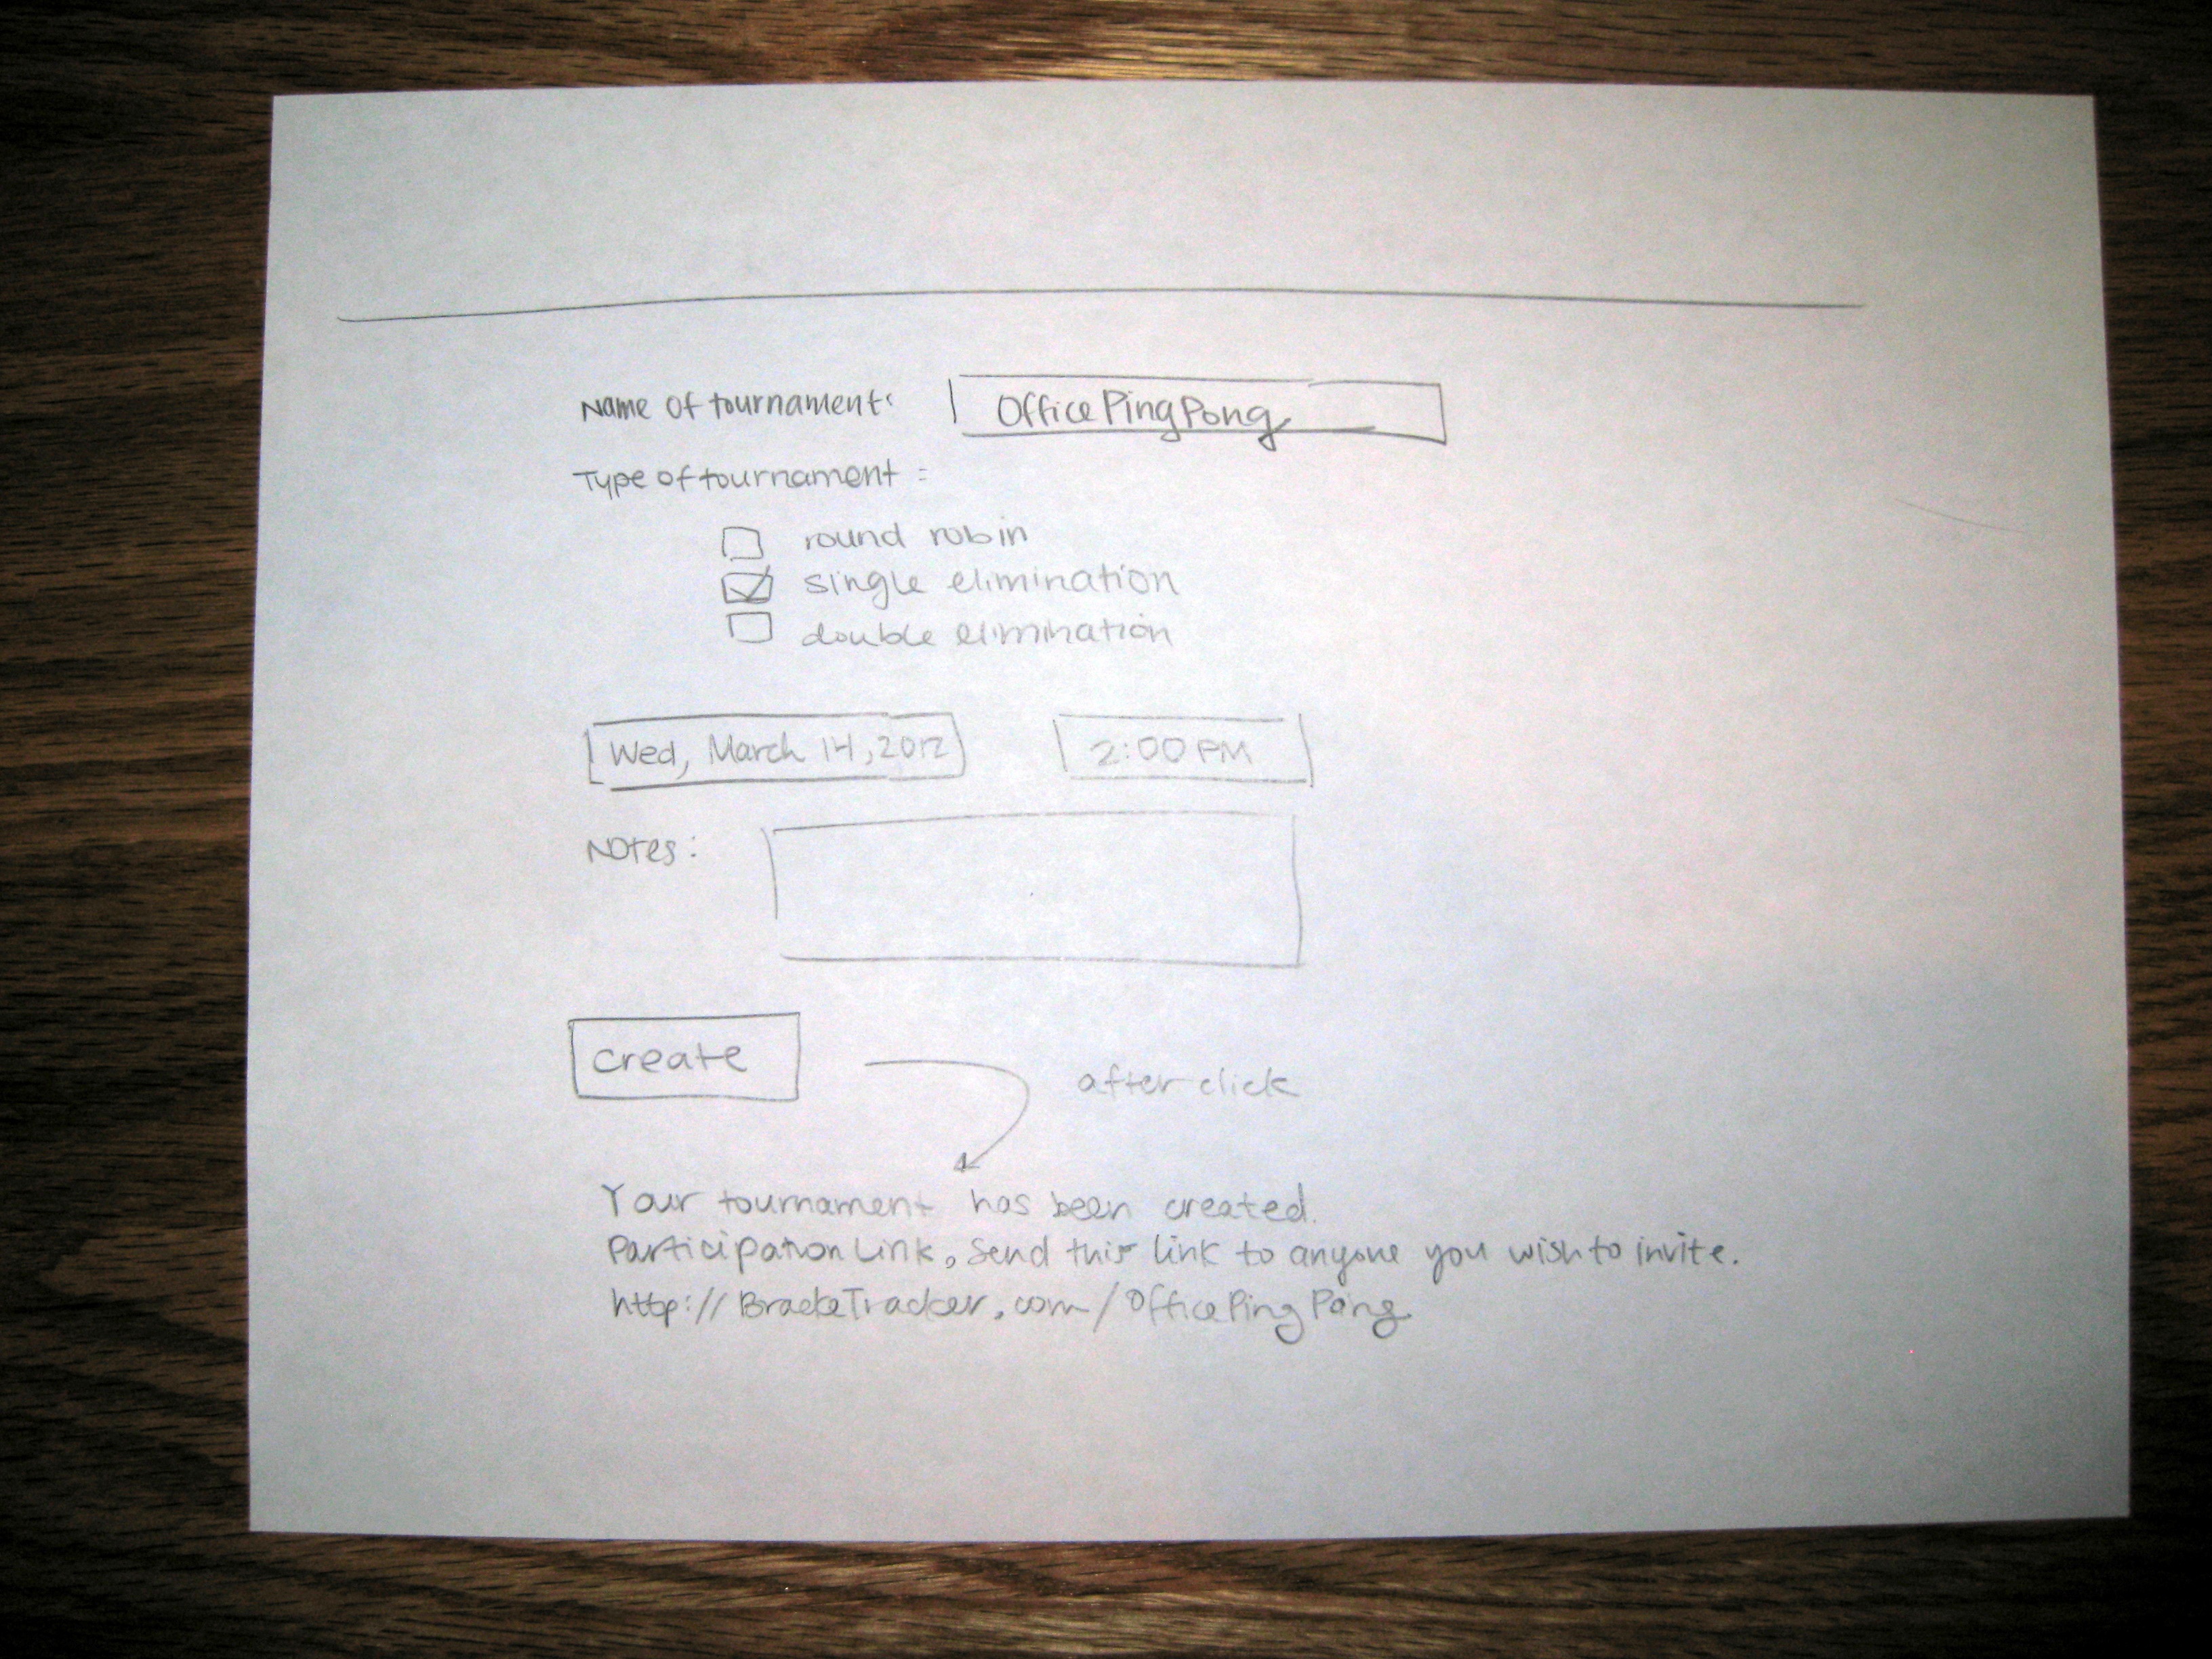 Name of tournament: OfficePingPong
Type of tournament:
round robin
single elimination
double elimination
Wed, March 14, 2012 2:00 PM
Notes:
create
after click
Your tournament has been created.
Participation Link, Send this link to anyone you wish to invite.
http://BracketTracker.com/OfficePingPong